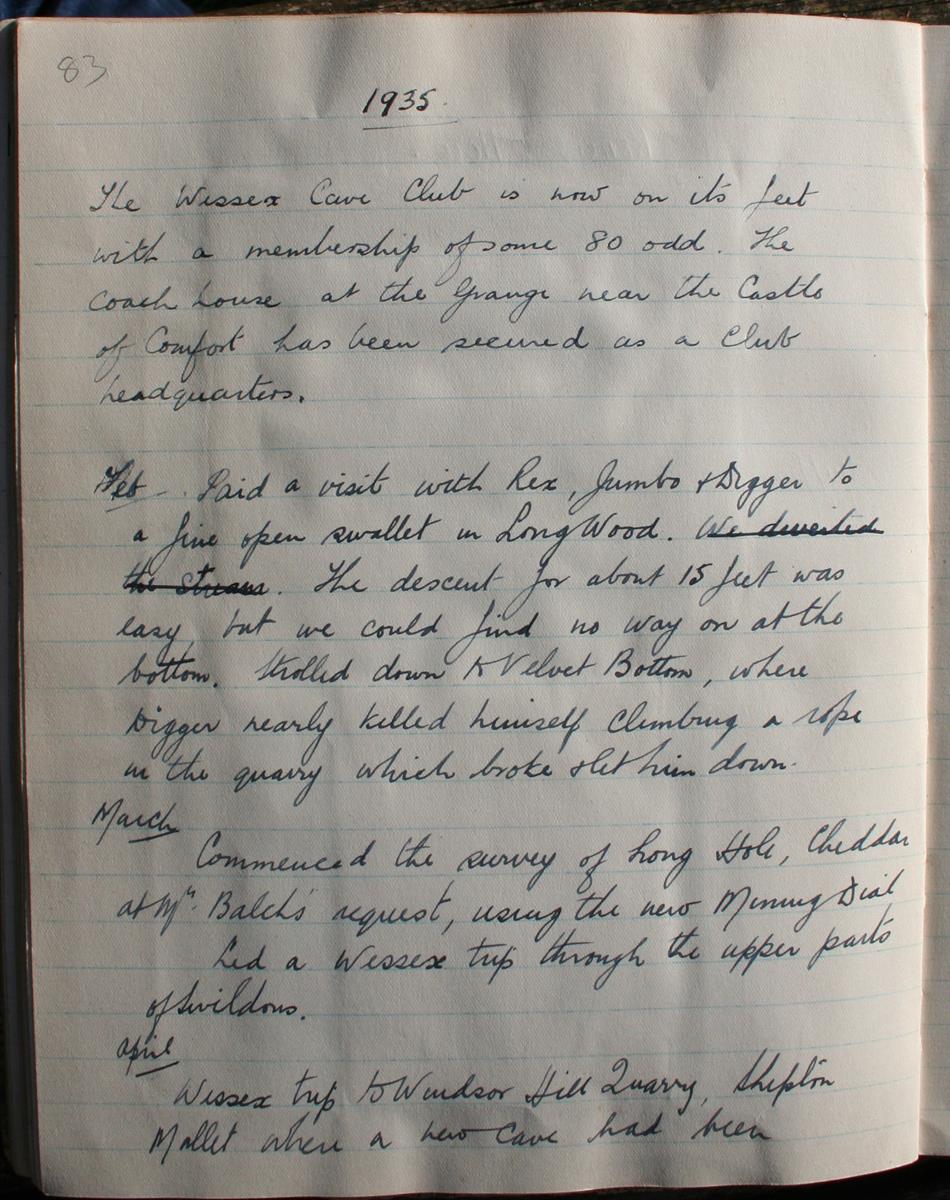 83
1935.
The Wessex Cave Club is now on its feet
with a membership of some 80 odd. The
coach house at the Grange near the Castle
of Comfort has been secured as a Club
headquarters.
Feb. Paid a visit with Rex, Jumbo & Digger to
a fine open swallet in Long Wood. We diverted
the stream. The descent for about 15 feet was
easy, but we could find no way on at the
bottom. Strolled down to Velvet Bottom, where
Digger nearly killed himself climbing a rope
in the quarry which broke & let him down.
March
Commenced the survey of Long Hole, Cheddar
at Mr. Balch's request, using the new Mining Dial
Led a Wessex trip through the upper parts
of Swildons.
April
Wessex trip to Windsor Hill Quarry, Shepton
Mallet where a new cave had been